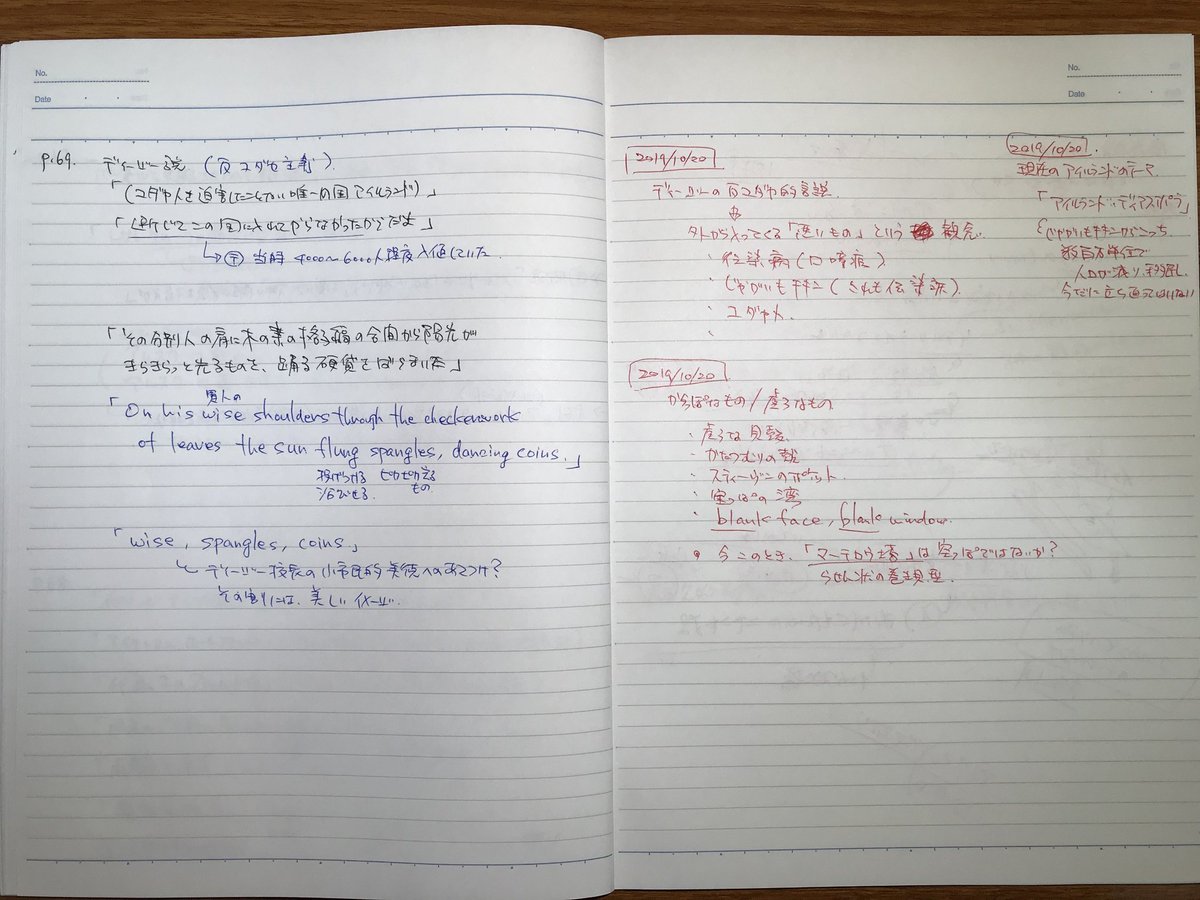 No.
Date
p.69.
ディージー校長 (反ユダヤ主義)
「(ユダヤ人を迫害したことがない唯一の国アイルランド)」
「断じてこの国に入れてやらなかったからだよ」
当時 4000〜6000人程度入植していた
「その分別人の肩に木の葉の格子縞の合間から陽光が
きらきらっと光るものを、踊る硬貨をばらまいた」
賢人の
「On his wise shoulders through the checkerwork
of leaves the sun flung spangles, dancing coins.」
投げつける ピカピカ光る
もの
「wise, spangles, coins」
ディージー校長の小市民的美徳へのあてつけ?
その割りには、美しいイメージ.
No.
Date
2019/10/20
ディージーの反ユダヤ的言説
外から入ってくる「悪いもの」という 観念.
・伝染病(口蹄疫)
・じゃがいもキキン (これも伝染病)
・ユダヤ人.
・
2019/10/20.
現在のアイルランドのテーマ
「アイルランド・ディアスポラ」
じゃがいもキキンからこっち
数百万単位で
人口が減り、移民し.
今だに立ち直ってはいない
2019/10/20
からっぽなもの/虚ろなもの
・虚ろな貝殻.
・かたつむりの殻
・スティーヴンのポケット.
・空っぽの湾
・blank face, blank window.
• 今このとき、「マーテロウ塔」は空っぽではないか?
らせん状の巻貝型.